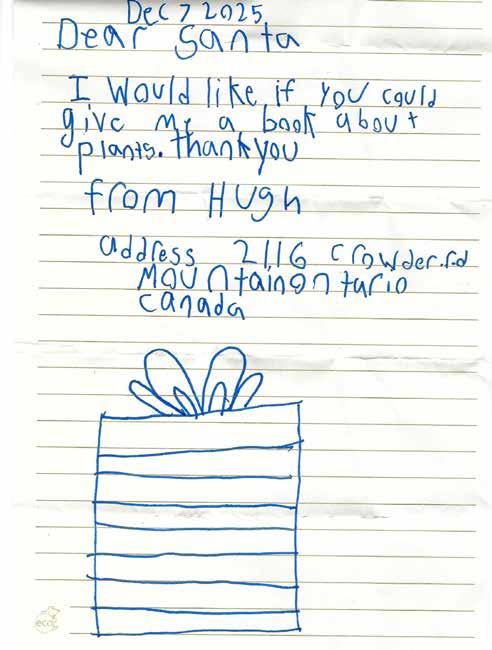 Dec 7 2025
Dear Santa
I would like if you could
give me a book about
plants. thank you
from Hugh
address 2116 crowder.rd
Mountain Ontario
Canada
eco